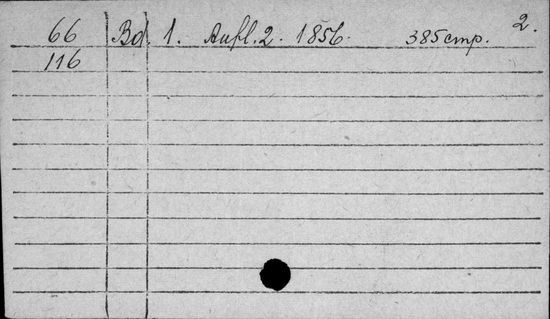 2.
66 Bd. 1. Aufl. 2. 1856. 385 стр.
116